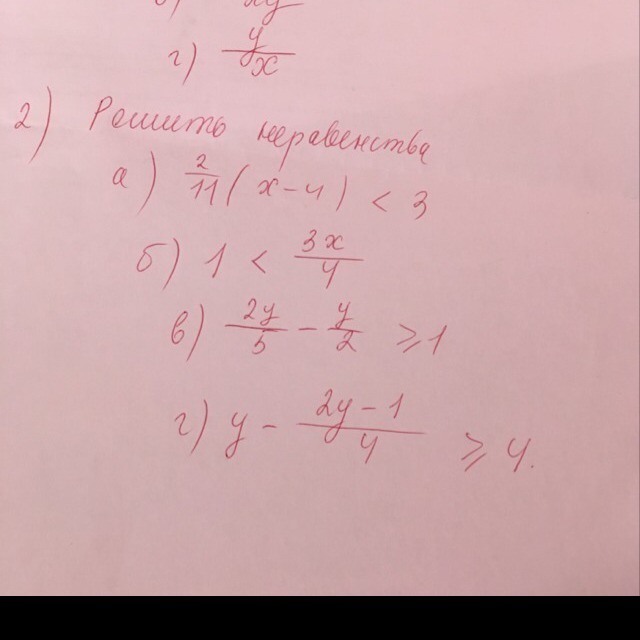 г) y/x
2) Решить неравенства
а) 2/11 (x-4) < 3
б) 1 < 3x/4
в) 2y/5 - y/2 ≥ 1
г) y - (2y-1)/4 ≥ 4.